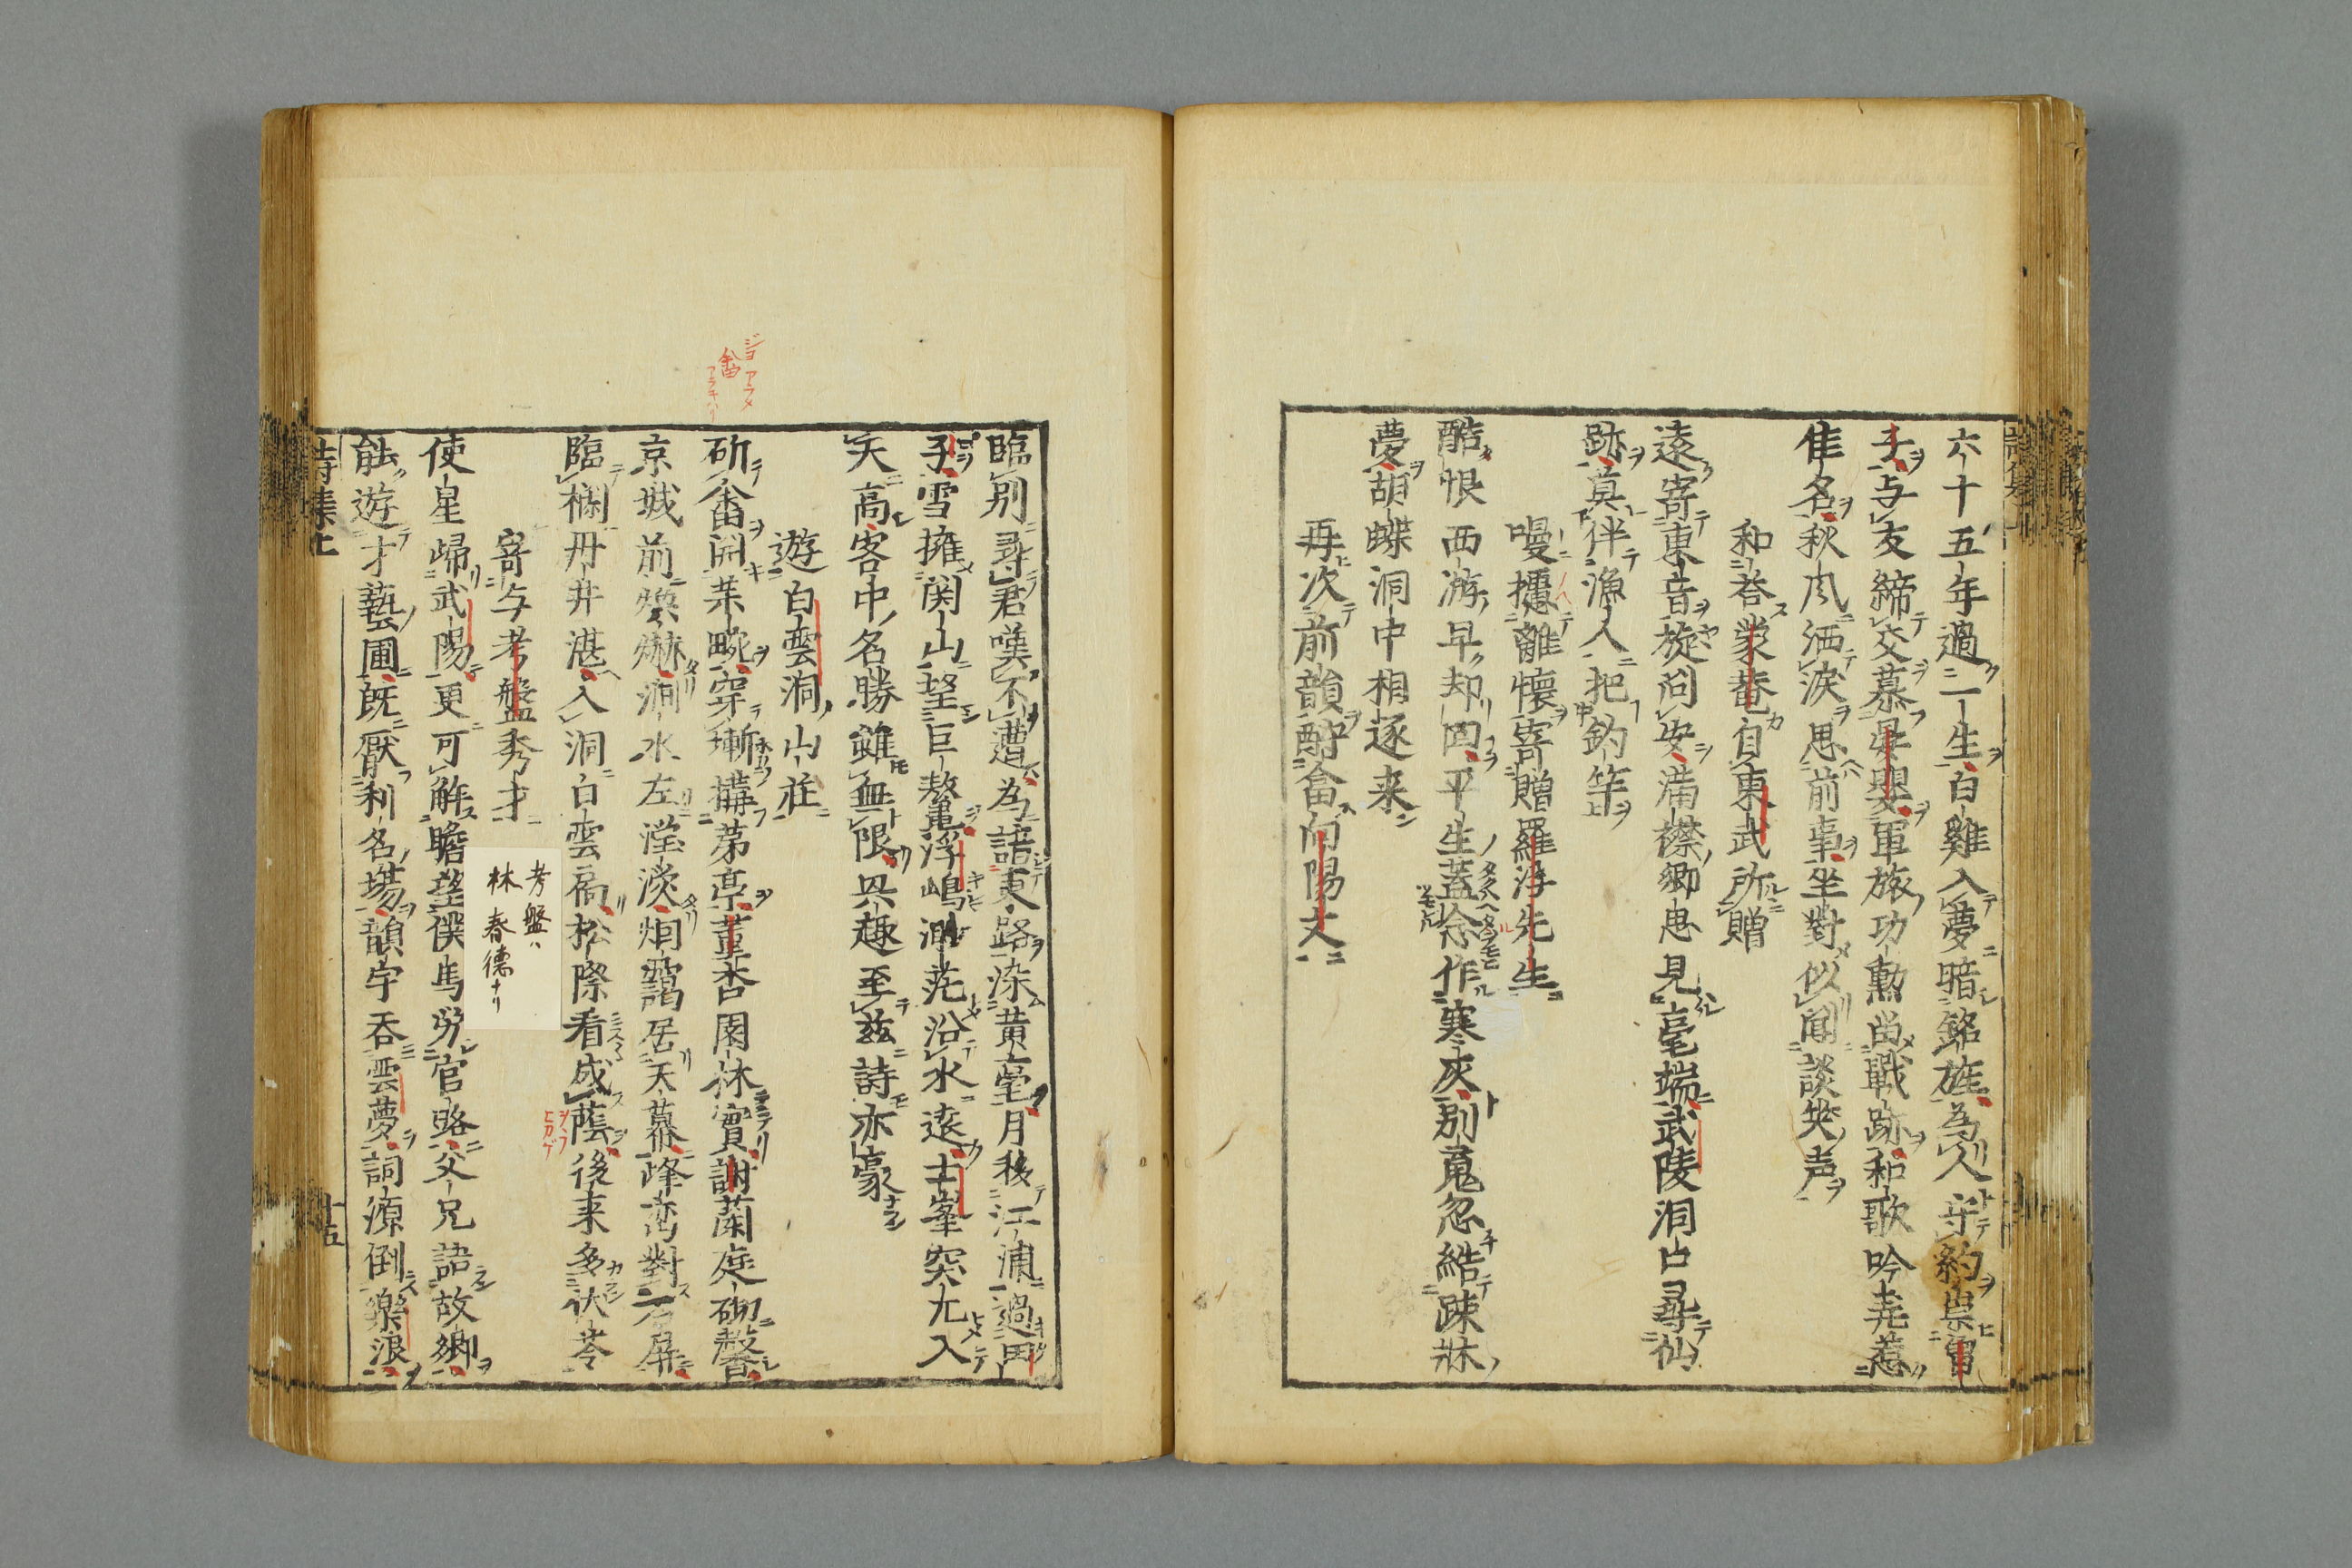 六十五年過一生白雞入夢暗銘旌為人守約崇曽
子与友締交慕晏嬰軍旅功勲尚戰跡和歌吟尭惹
佳名秋風洒涙思前事坐對似聞談笑声
和荅蒙菴自東武所贈
遠寄東音旋問安満襟郷思見毫端武陵洞口尋仙
跡莫伴漁人把釣竿
嘡攄離懐寄贈羅浮先生
酷恨西游早却回平生蓋念作寒灰別䰟忽繞疎牀
夢胡蝶洞中相逐来
再次前韻酬畣向陽丈
臨別尋君嘆不遭為語東路染黄毫月移江浦過田
子雪擁関山望巨鼇浮嶋渺茫沿水遠士峯突兀入
天高客中名勝雖無限與趣至茲詩亦豪
遊白雲洞山荘
斫畬開菜畹穿塹搆茅亭董杏園林實謝蘭庭砌馨
京城前煥爀澗水左瀅淡炯靄居天幕峰巒對石屏
臨欄丹井湛入洞白雲扃松際看成蔭後来多茯苓
寄与考盤秀才
使星歸武陽更可解瞻望僕馬労官路父兄語故郷
能遊才藝圃既厭利名場韻宇吞雲夢詞源倒樂浪
考盤ハ
林春徳ナリ
詩集上
十五